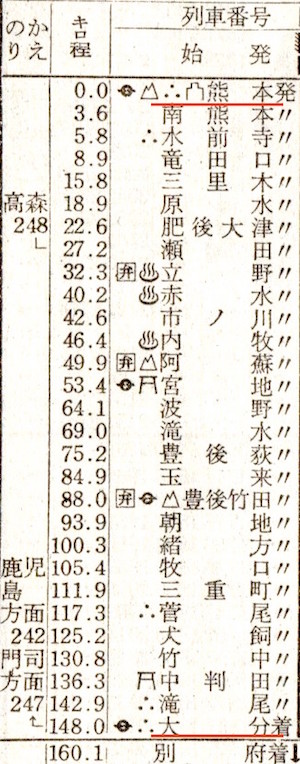 のりかえ キロ程 列車番号
始発
0.0 熊本発
3.6 南熊本〃
5.8 水前寺〃
8.9 竜田口〃
15.8 三里木〃
高森 18.9 原水〃
248 22.6 肥後大津〃
27.2 瀬田〃
32.3 弁 立野〃
40.2 赤水〃
42.6 市ノ川〃
46.4 内牧〃
49.9 弁 阿蘇〃
53.4 宮地〃
64.1 波野〃
69.0 滝水〃
75.2 豊後荻〃
84.9 玉来〃
88.0 弁 豊後竹田〃
93.9 朝地〃
100.3 緒方〃
鹿児 105.4 牧口〃
島 111.9 三重町〃
方面 117.3 菅尾〃
242 125.2 犬飼〃
門司 130.8 竹中〃
方面 136.3 中判田〃
247 142.9 滝尾〃
148.0 大分着
160.1 別府着